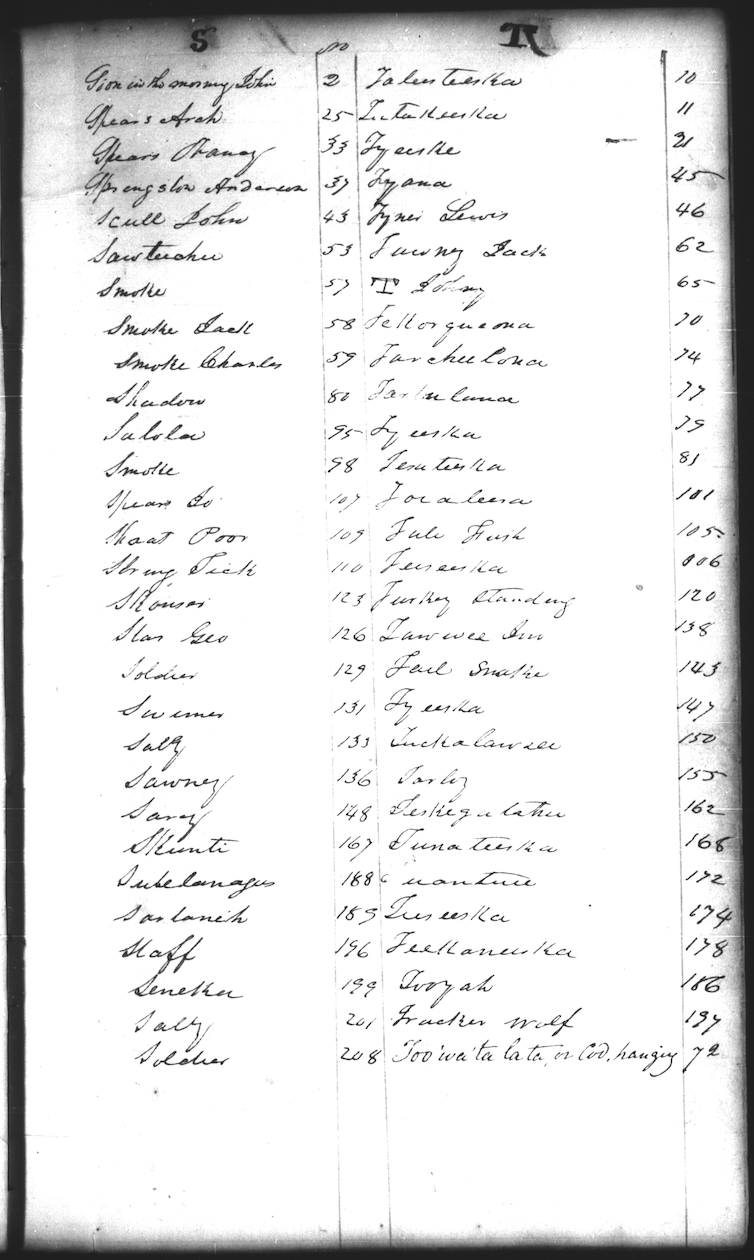 S No T
in the morning John 2 Taleeteeska 10
Spears Arch 25 Tutakeeska 11
Spears 33 Tyeeske 21
Springston Anderson 37 Tyana 45
Scull John 43 Tyner Lewis 46
Sawteecher 53 Tawney Jack 62
Smoke 57 T Johny 65
Smoke Jack 58 70
Smoke Charles 59 74
Shadow 80 77
Salola 95 Tyeeska 79
Smoke 98 Tesateeska 81
Spears Jo 107 101
Skaat Poor 109 105
String Tick 110 Teeseeska 106
123 Turkey Standing 120
Star Geo 126 Tawwee 138
Soldier 129 Tail Snake 143
Swimer 131 Tyeeska 147
Sally 133 Tuckalawsee 150
Sawney 136 155
148 Teskegatahee 162
Skunti 167 Tunateeska 168
188 172
Sarlaneeh 189 Tuseeska 174
Staff 196 Teekaneeska 178
Seneker 199 Tooyah 186
Sally 201 Tracker Wolf 197
Soldier 208 Too'wa'ta la ta, or Cod, hanging 72